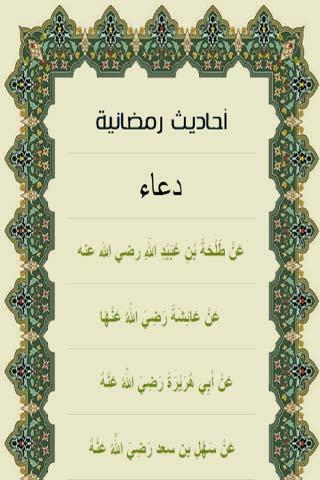 أحاديث رمضانية
دعاء
عَنْ طَلْحَةَ بْنِ عُبَيْدِ اللهِ رضي الله عنه
عَنْ عَائِشَةَ رَضِيَ اللَّهُ عَنْهَا
عَنْ أَبِي هُرَيْرَةَ رَضِيَ اللَّهُ عَنْهُ
عَنْ سَهْلِ بن سعد رَضِيَ اللَّهُ عَنْهُ